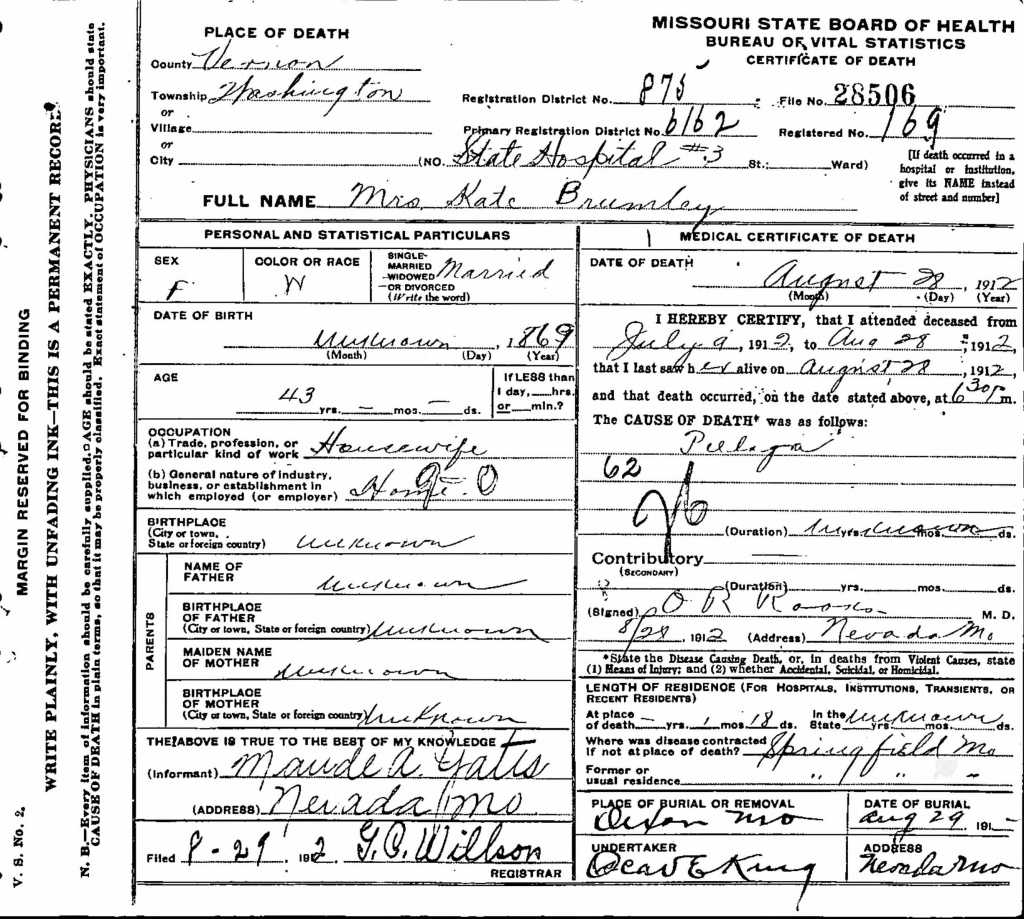 MISSOURI STATE BOARD OF HEALTH
BUREAU OF VITAL STATISTICS
CERTIFICATE OF DEATH
PLACE OF DEATH
County Vernon
Township Washington
or
Village
or
City
Registration District No. 875
File No. 28506
Primary Registration District No. 6162
Registered No. 169
(NO. State Hospital #3 St.; Ward)
[If death occurred in a
hospital or institution,
give its NAME instead
of street and number]
FULL NAME Mrs. Kate Brumley
PERSONAL AND STATISTICAL PARTICULARS
SEX
F
COLOR OR RACE
W
SINGLE-
MARRIED
WIDOWED
OR DIVORCED
(Write the word)
Married
DATE OF BIRTH
Unknown, 1869
(Month) (Day) (Year)
AGE
43 yrs. — mos. — ds.
If LESS than
1 day, hrs.
or min.?
OCCUPATION
(a) Trade, profession, or
particular kind of work Housewife
(b) General nature of industry,
business, or establishment in
which employed (or employer) Home
BIRTHPLACE
(City or town,
State or foreign country) Unknown
PARENTS
NAME OF
FATHER Unknown
BIRTHPLACE
OF FATHER
(City or town, State or foreign country) Unknown
MAIDEN NAME
OF MOTHER Unknown
BIRTHPLACE
OF MOTHER
(City or town, State or foreign country) Unknown
THE ABOVE IS TRUE TO THE BEST OF MY KNOWLEDGE
(Informant) Maude A. Gatis
(ADDRESS) Nevada Mo
Filed 8-29 1912 G.C. Willson
REGISTRAR
MEDICAL CERTIFICATE OF DEATH
DATE OF DEATH
August 28, 1912
(Month) (Day) (Year)
I HEREBY CERTIFY, that I attended deceased from
July 9, 1912, to Aug 28, 1912,
that I last saw her alive on August 28, 1912,
and that death occurred, on the date stated above, at 6 30 p m.
The CAUSE OF DEATH* was as follows:
62
26
(Duration) Unknown yrs. mos. ds.
Contributory
(SECONDARY)
(Duration) yrs. mos. ds.
(Signed) O R M. D.
8/28, 1912 (Address) Nevada Mo
*State the Disease Causing Death, or, in deaths from Violent Causes, state
(1) Means of Injury; and (2) whether Accidental, Suicidal, or Homicidal.
LENGTH OF RESIDENCE (FOR HOSPITALS, INSTITUTIONS, TRANSIENTS, OR
RECENT RESIDENTS)
At place
of death — yrs. 1 mos. 18 ds.
In the
State Unknown yrs. mos. ds.
Where was disease contracted
If not at place of death? Springfield Mo
Former or
usual residence " " "
PLACE OF BURIAL OR REMOVAL
Dixon Mo
DATE OF BURIAL
Aug 29 191
UNDERTAKER
E King
ADDRESS
Nevada Mo
MARGIN RESERVED FOR BINDING
WRITE PLAINLY, WITH UNFADING INK—THIS IS A PERMANENT RECORD
N. B.—Every item of information should be carefully supplied. AGE should be stated EXACTLY. PHYSICIANS should state
CAUSE OF DEATH in plain terms, so that it may be properly classified. Exact statement of OCCUPATION is very important.
V. S. No. 2.